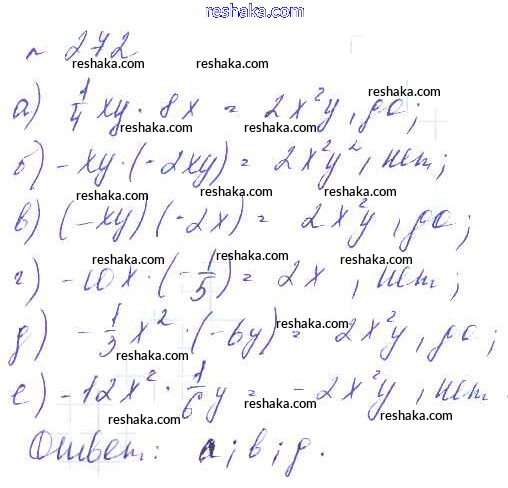 reshaka.com
№ 272
reshaka.com reshaka.com
а) 1/4 xy · 8x = 2x²y, да;
reshaka.com reshaka.com
б) -xy · (-2xy) = 2x²y², нет;
reshaka.com reshaka.com
в) (-xy)(-2x) = 2x²y, да;
reshaka.com reshaka.com
г) -10x · (-1/5) = 2x, нет;
reshaka.com reshaka.com
д) -1/3 x² · (-6y) = 2x²y, да;
reshaka.com reshaka.com
е) -12x² · 1/6 y = -2x²y, нет.
reshaka.com reshaka.com
Ответ: а; в; д.
reshaka.com reshaka.com